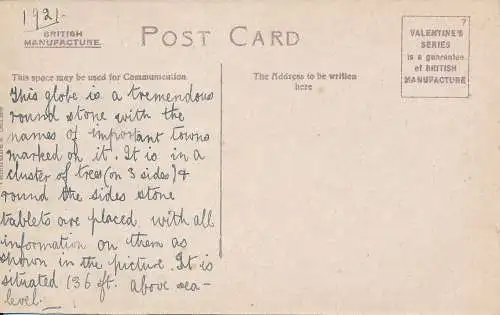 1921.
BRITISH
MANUFACTURE
POST CARD
VALENTINE'S
SERIES
is a guarantee
of BRITISH
MANUFACTURE
This space may be used for Communication
The Address to be written
here
This globe is a tremendous
round stone with the
names of important towns
marked on it. It is in a
cluster of trees (on 3 sides) &
round the sides stone
tablets are placed with all
information on them as
shown in the picture. It is
situated 136 ft. above sea-
level.